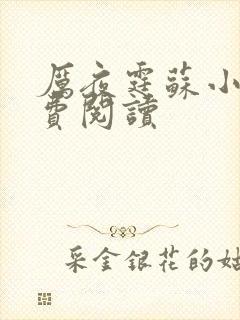 厲夜霆蘇小
費閱讀
采金銀花的姑